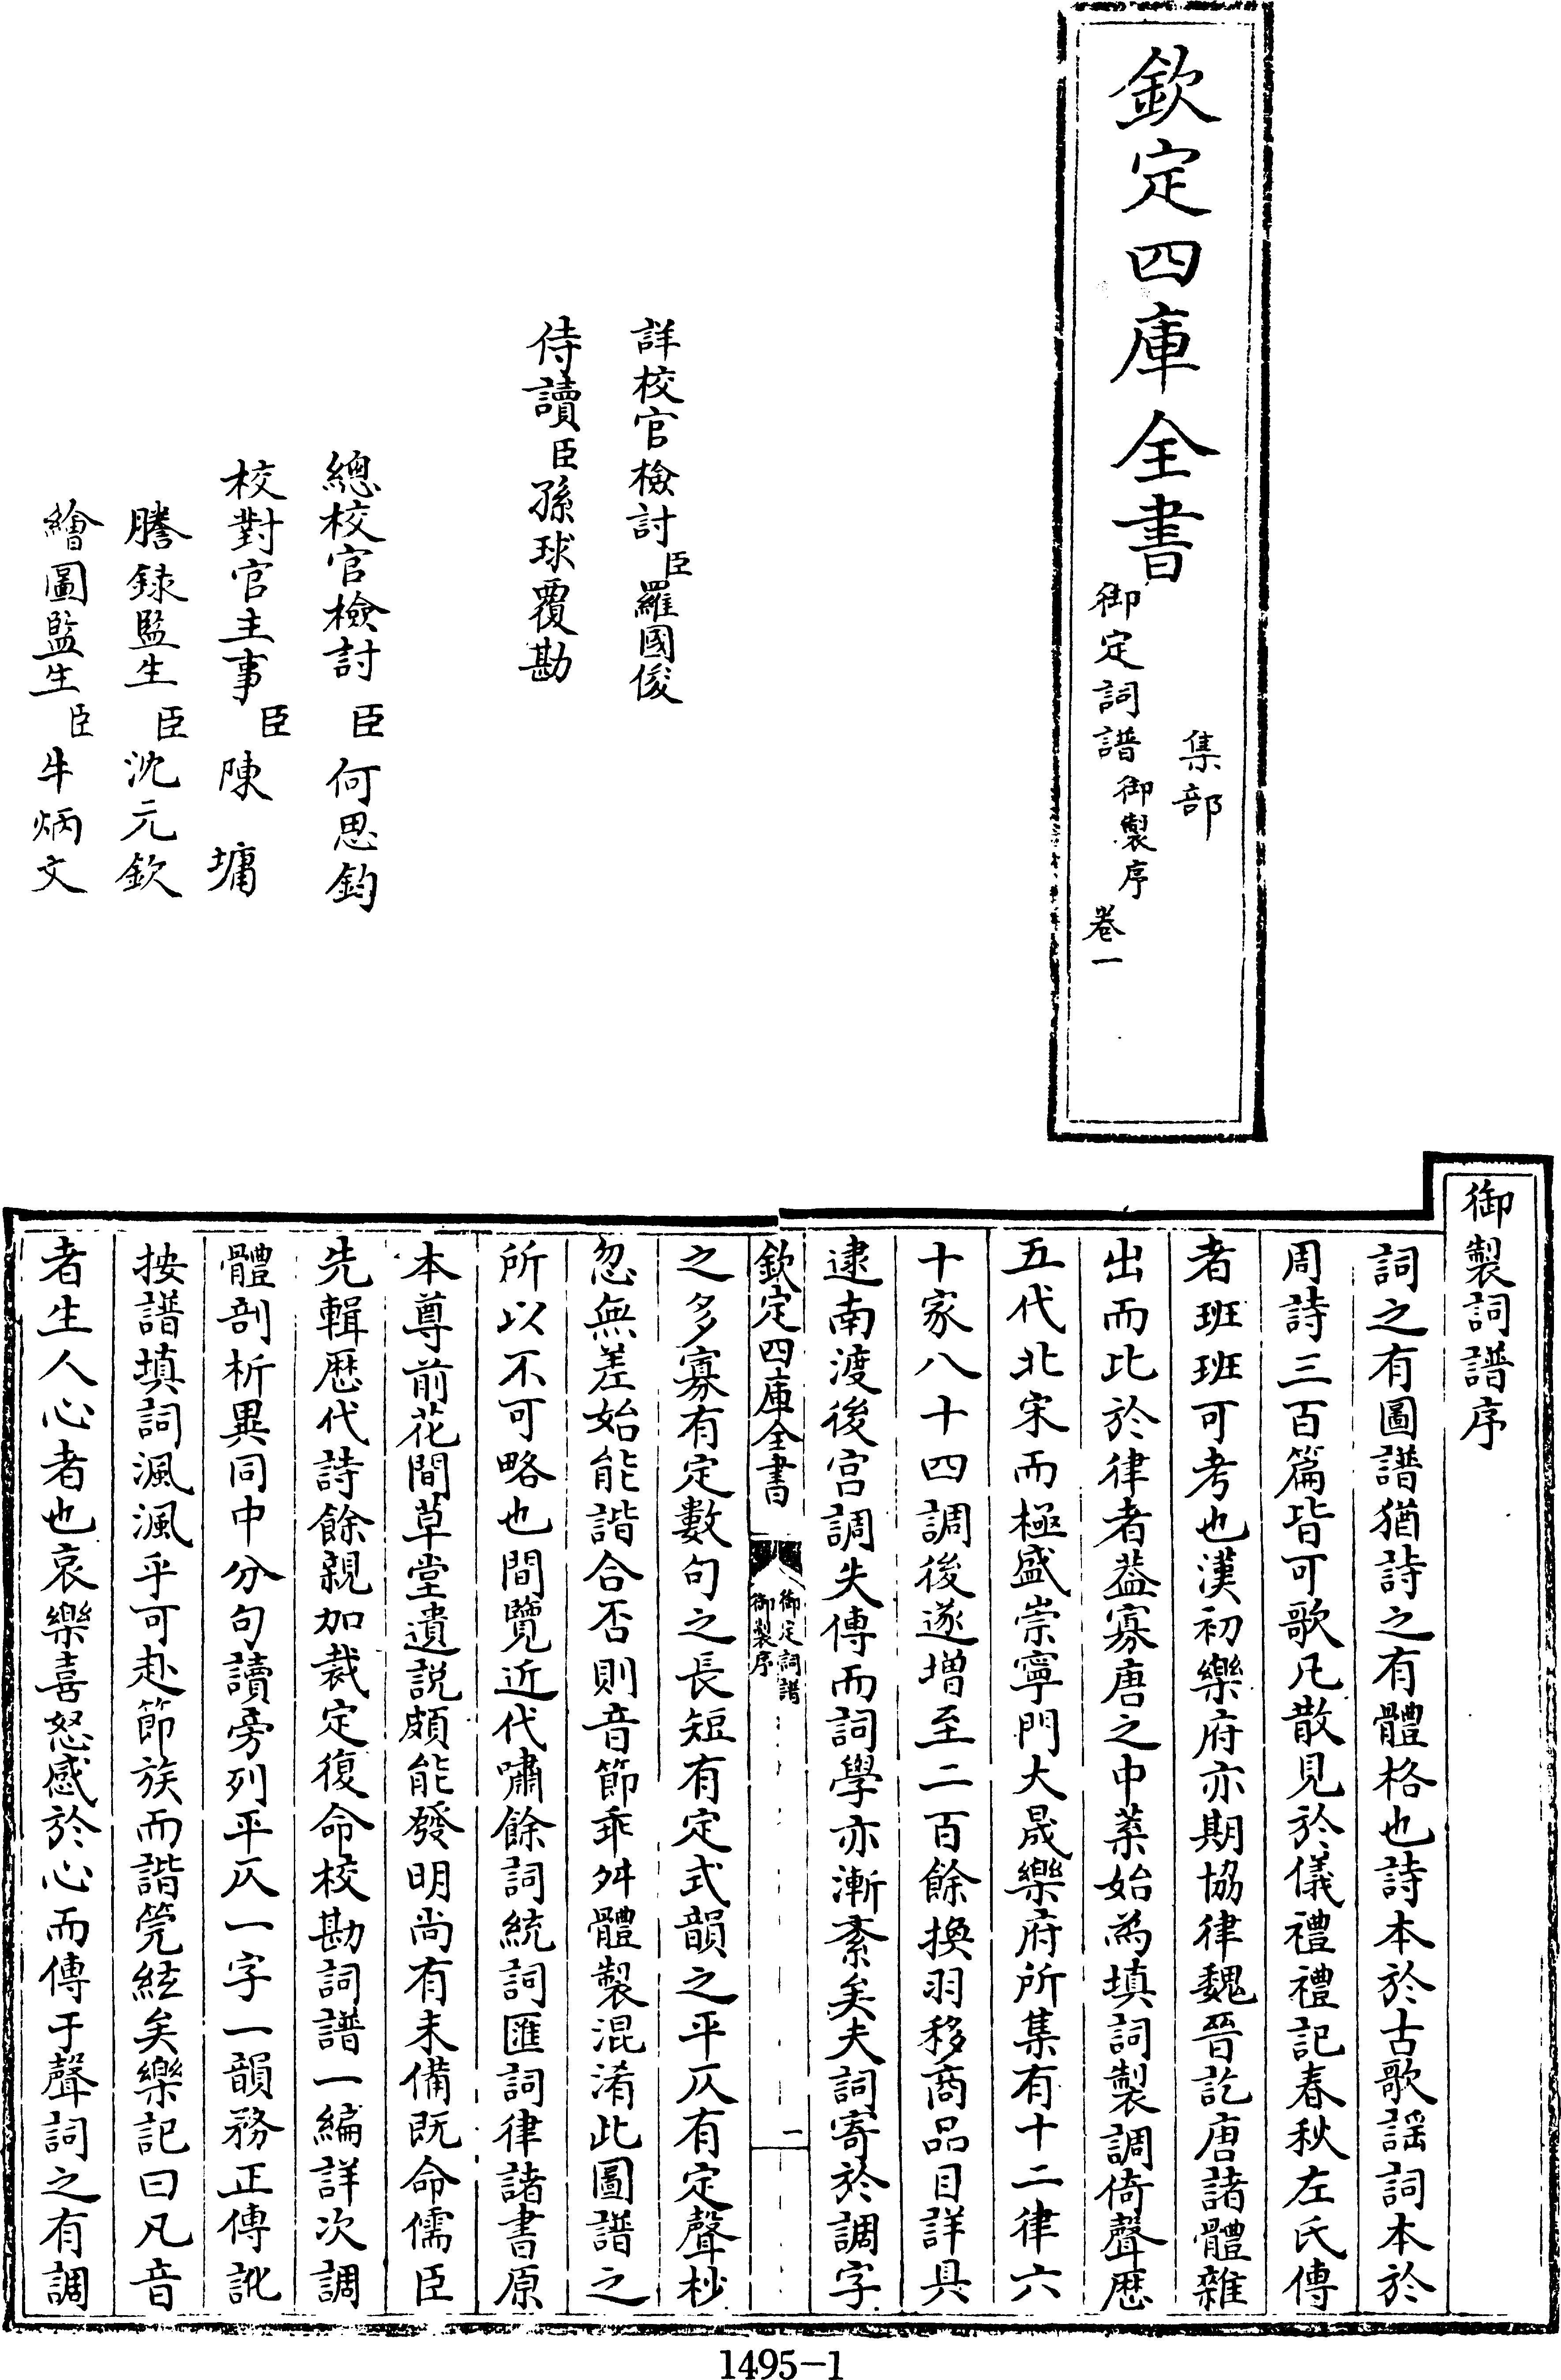 欽定四庫全書
集部
御定詞譜御製序
卷一
詳校官檢討臣羅國俊
侍讀臣孫球覆勘
總校官檢討臣何思鈞
校對官主事臣陳墉
謄錄監生臣沈元欽
繪圖監生臣牛炳文
御製詞譜序
詞之有圖譜猶詩之有體格也詩本於古歌謡詞本於
周詩三百篇皆可歌凡散見於儀禮禮記春秋左氏傳
者班班可考也漢初樂府亦期協律魏晉訖唐諸體雜
出而比於律者葢寡唐之中葉始為填詞製調倚聲歴
五代北宋而極盛崇寧間大晟樂府所集有十二律六
十家八十四調後遂增至二百餘換羽移商品目詳具
逮南渡後宫調失傳而詞學亦漸紊矣夫詞寄於調字
欽定四庫全書
御定詞譜
御製序
一
之多寡有定數句之長短有定式韻之平仄有定聲杪
忽無差始能諧合否則音節乖舛體製混淆此圖譜之
所以不可略也間覽近代嘯餘詞統詞匯詞律諸書原
本尊前花間草堂遺説頗能發明尚有未備既命儒臣
先輯歴代詩餘親加裁定復命校勘詞譜一編詳次調
體剖析異同中分句讀旁列平仄一字一韻務正傳訛
按譜填詞渢渢乎可赴節族而諧筦絃矣樂記曰凡音
者生人心者也哀樂喜怒感於心而傳于聲詞之有調
1495-1